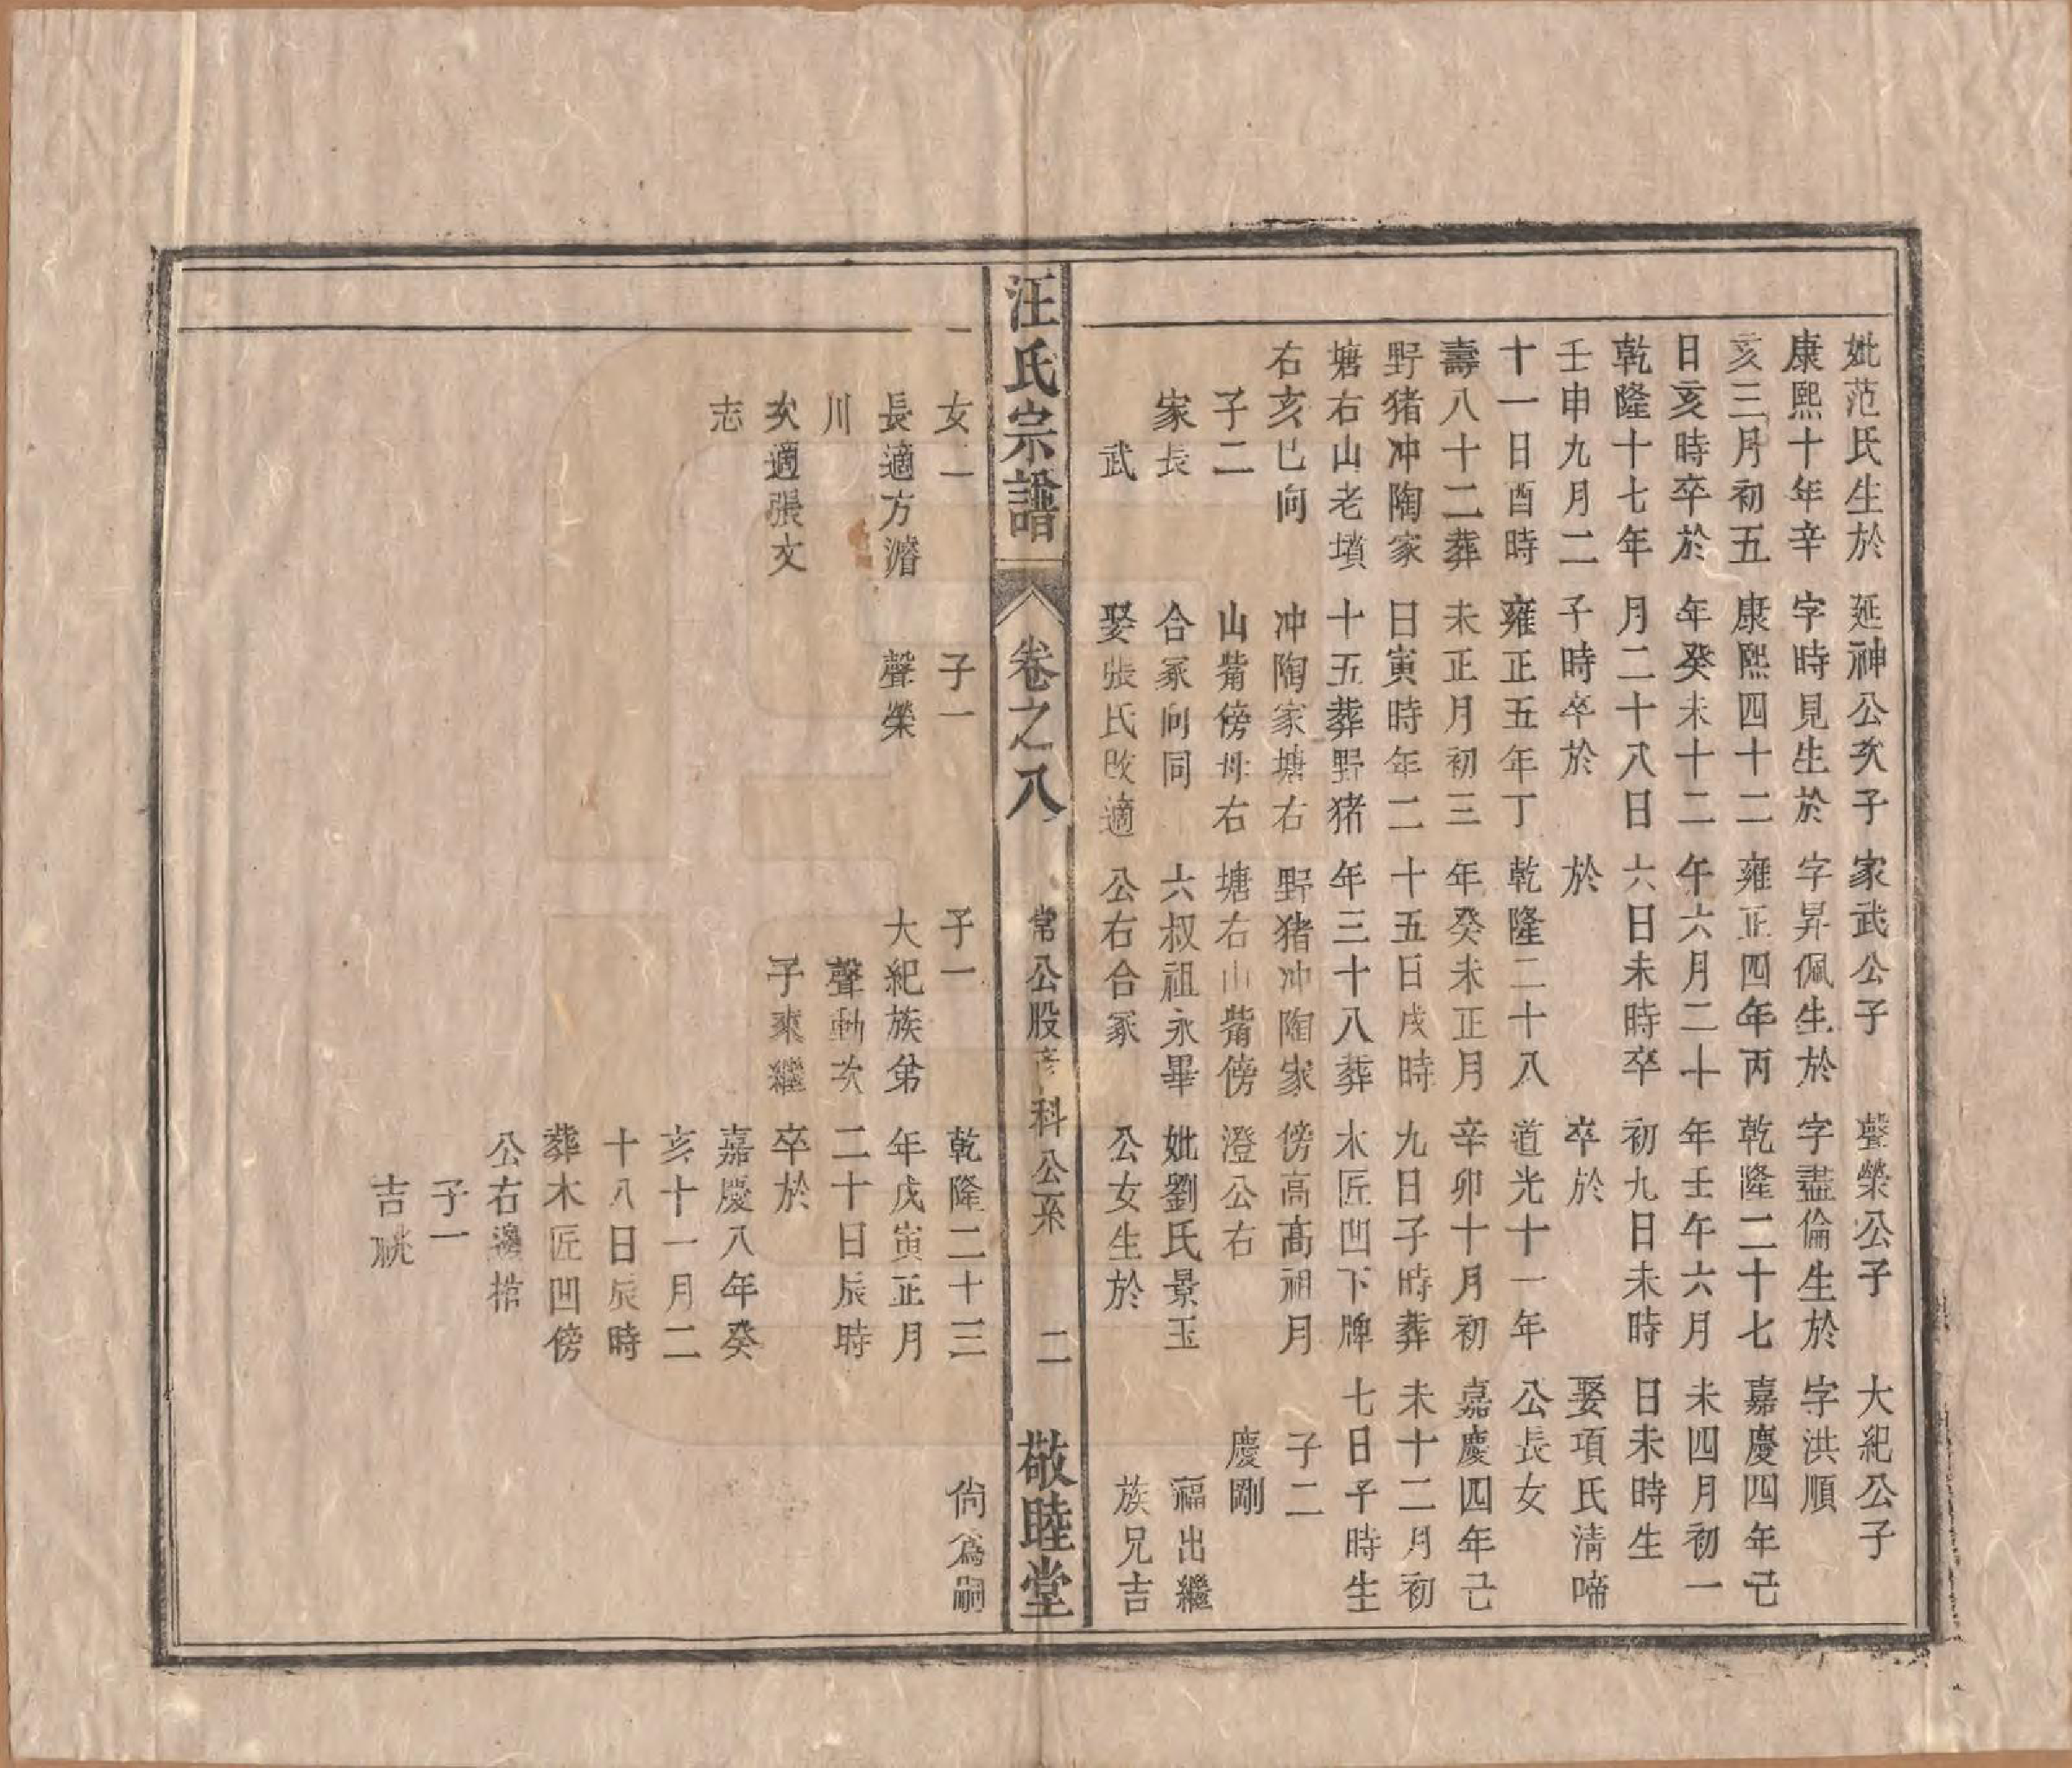 妣范氏生於
康熙十年辛
亥三月初五
日亥時卒於
乾隆十七年
壬申九月二
十一日酉時
壽八十二葬
野猪冲陶家
塘右山老墳
右亥巳向
子二
家長
武
女一
長適方濬
川
次適張文
志
延神公次子
字時見生於
康熙四十二
年癸未十二
月二十八日
子時卒於
雍正五年丁
未正月初三
日寅時年二
十五葬野猪
冲陶家塘右
山觜傍母右
合冢向同
娶張氏改適
子一
聲榮
家武公子
字昇佩生於
雍正四年丙
午六月二十
六日未時卒
於
乾隆二十八
年癸未正月
十五日戌時
年三十八葬
野猪冲陶家
塘右山觜傍
六叔祖永畢
公右合冢
子一
大紀族弟
聲動次
子來繼
聲榮公子
字盡倫生於
乾隆二十七
年壬午六月
初九日未時
卒於
道光十一年
辛卯十月初
九日子時葬
木匠凹下牌
傍高高祖月
澄公右
妣劉氏景玉
公女生於
乾隆二十三
年戊寅正月
二十日辰時
卒於
嘉慶八年癸
亥十一月二
十八日辰時
葬木匠凹傍
公右邊棺
子一
吉祧
大紀公子
字洪順
嘉慶四年己
未四月初一
日未時生
娶項氏淸啼
公長女
嘉慶四年己
未十二月初
七日子時生
子二
慶剛
福出繼
族兄吉
尙爲嗣
汪氏宗譜
卷之八
常公股 科公系
二
敬睦堂